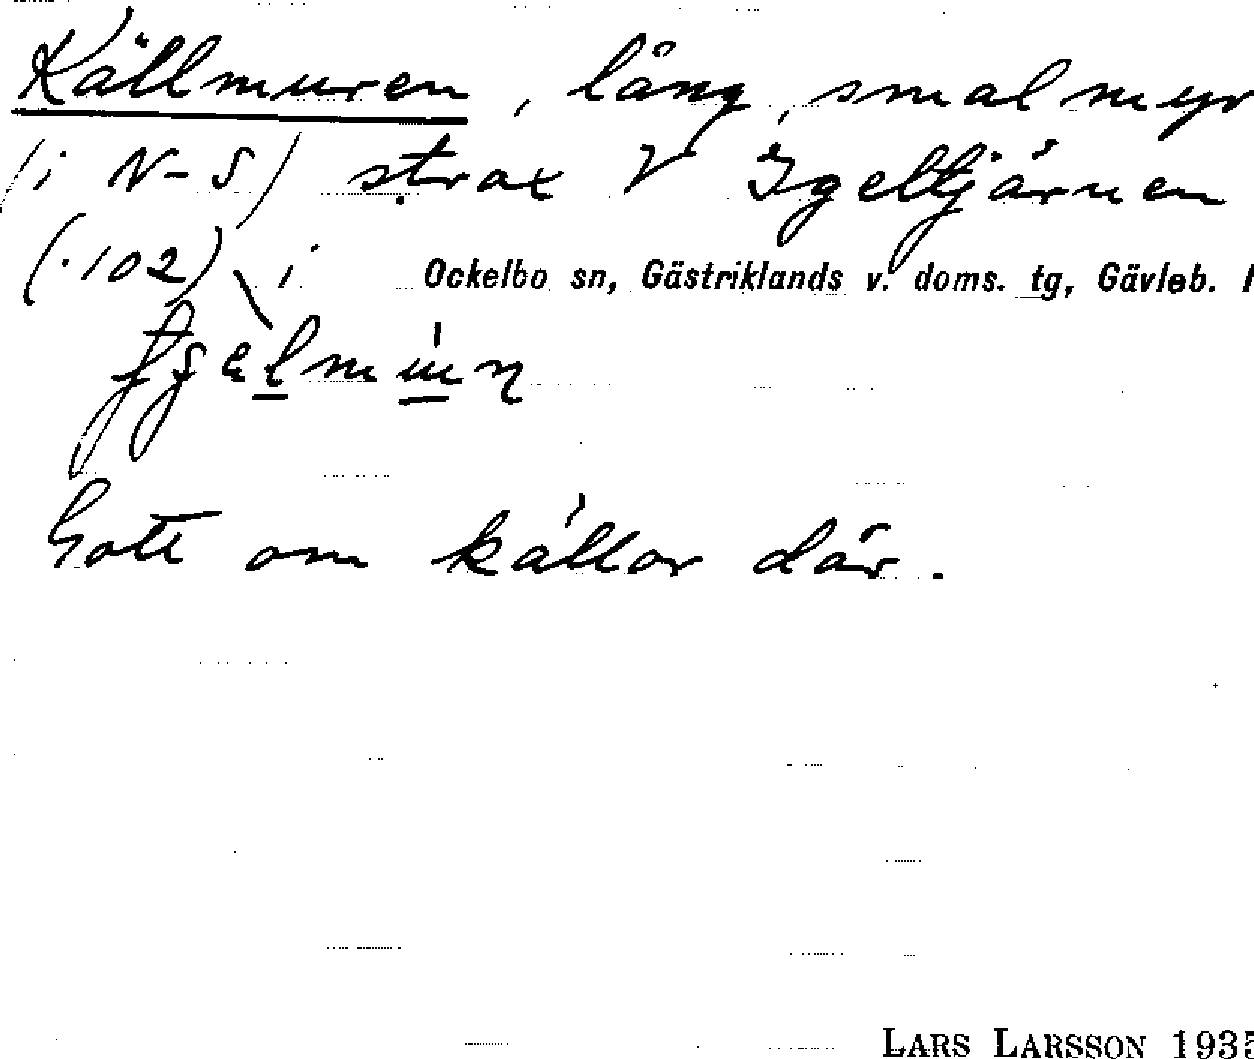 Källmuren, lång, smal myr
(i N-S) strax V Igeltjärnen
(.102) i Ockelbo sn, Gästriklands v. doms. tg, Gävleb. l
Gott om källor där.
LARS LARSSON 1935